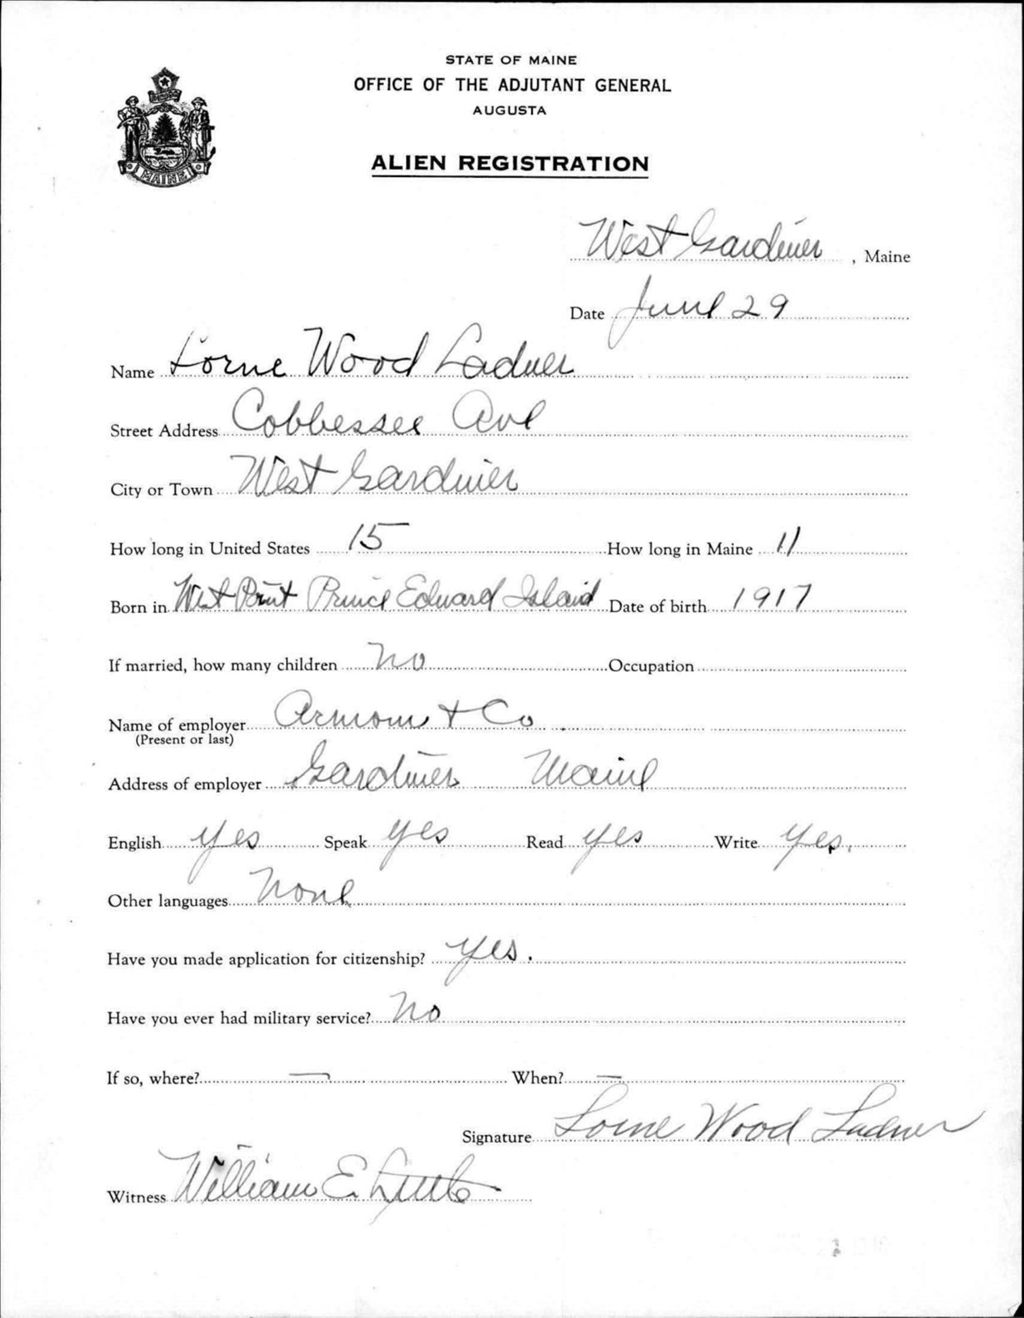 STATE OF MAINE
OFFICE OF THE ADJUTANT GENERAL
AUGUSTA
MAINE
ALIEN REGISTRATION
West Gardiner, Maine
Date June 29
Name Lorne Wood Ladner
Street Address Cobbessee Ave
City or Town West Gardiner
How long in United States 15 How long in Maine 11
Born in West Point Prince Edward Island Date of birth 1917
If married, how many children No Occupation
Name of employer Armour + Co
(Present or last)
Address of employer Gardiner Maine
English yes Speak yes Read yes Write yes.
Other languages None
Have you made application for citizenship? yes.
Have you ever had military service? No
If so, where? — When? —
Signature Lorne Wood Ladner
Witness William E. Little